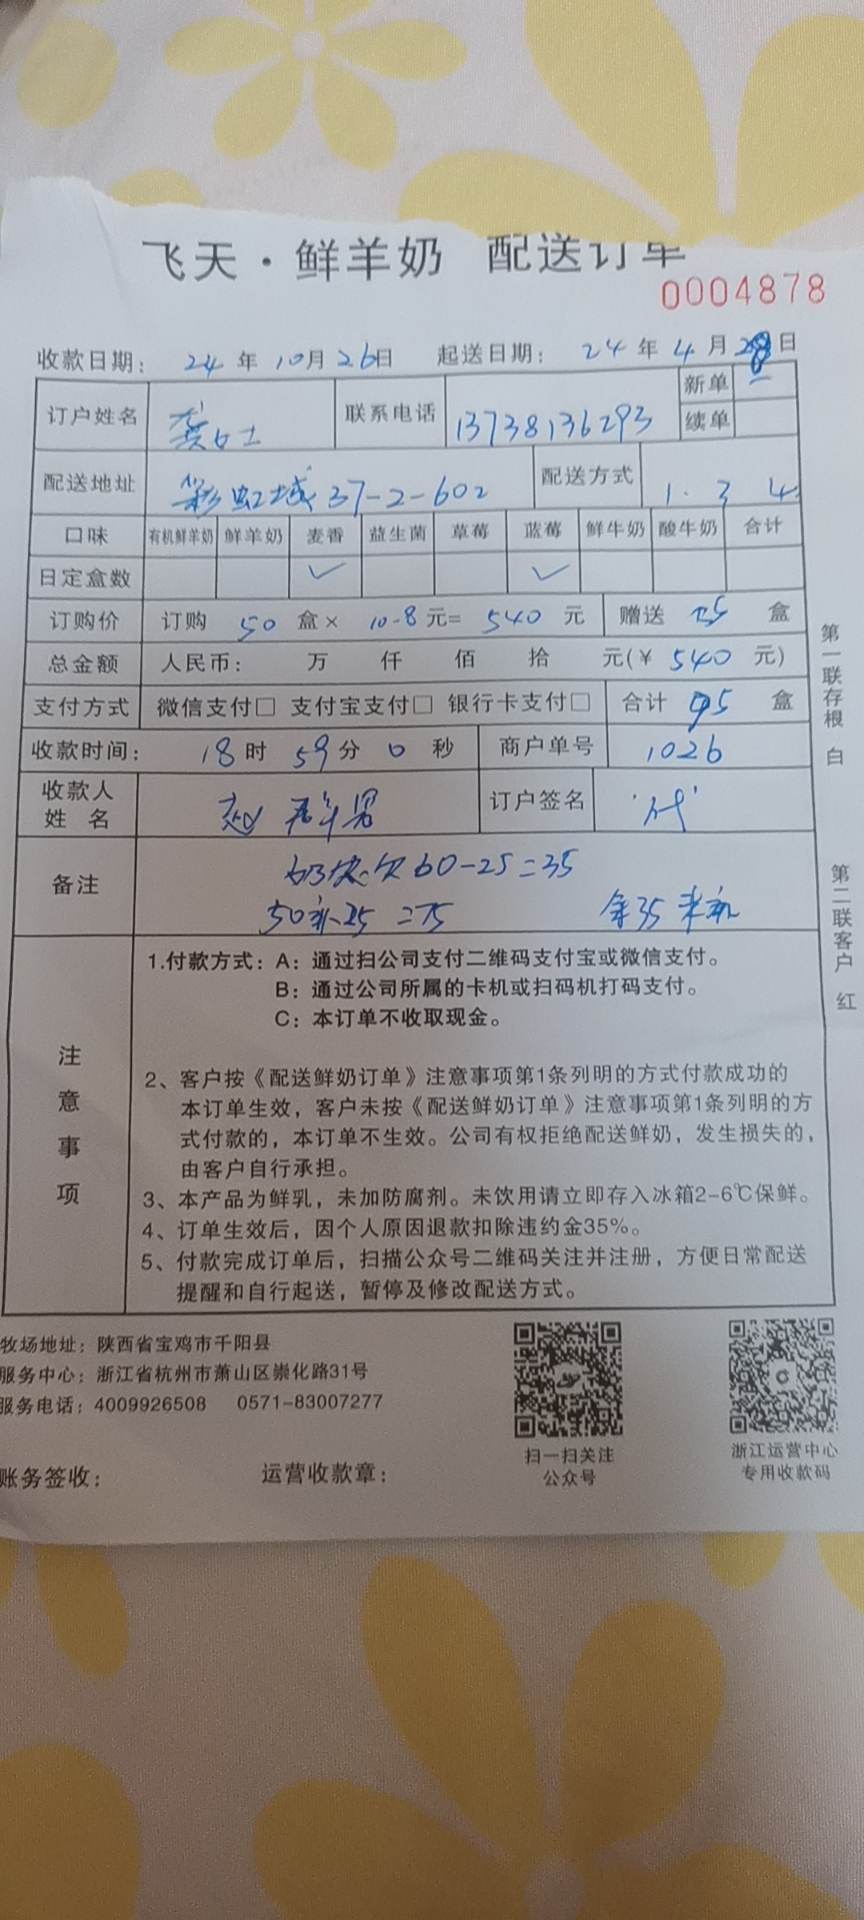 飞天·鲜羊奶 配送订单
0004878
收款日期: 24年10月26日 起送日期: 24年4月28日
订户姓名 龚女士 联系电话 13738136293 新单
续单
配送地址 彩虹城37-2-602 配送方式 1. 3 4.
口味 有机鲜羊奶 鲜羊奶 麦香 益生菌 草莓 蓝莓 鲜牛奶 酸牛奶 合计
日定盒数 ✓ ✓
订购价 订购 50 盒× 10.8元= 540 元 赠送 25 盒
总金额 人民币: 万 仟 佰 拾 元(¥ 540 元)
支付方式 微信支付□ 支付宝支付□ 银行卡支付□ 合计 75 盒
收款时间: 18时 59分 0 秒 商户单号 1026
收款人姓名 赵 男 订户签名 代
备注 奶 欠60-25=35
50 25 =75 余35
注意事项
1.付款方式: A: 通过扫公司支付二维码支付宝或微信支付。
B: 通过公司所属的卡机或扫码机打码支付。
C: 本订单不收取现金。
2、客户按《配送鲜奶订单》注意事项第1条列明的方式付款成功的
本订单生效，客户未按《配送鲜奶订单》注意事项第1条列明的方
式付款的，本订单不生效。公司有权拒绝配送鲜奶，发生损失的，
由客户自行承担。
3、本产品为鲜乳，未加防腐剂。未饮用请立即存入冰箱2-6℃保鲜。
4、订单生效后，因个人原因退款扣除违约金35%。
5、付款完成订单后，扫描公众号二维码关注并注册，方便日常配送
提醒和自行起送，暂停及修改配送方式。
第一联存根 白
第二联客户 红
牧场地址: 陕西省宝鸡市千阳县
服务中心: 浙江省杭州市萧山区崇化路31号
服务电话: 4009926508 0571-83007277
扫一扫关注
公众号
浙江运营中心
专用收款码
账务签收: 运营收款章: